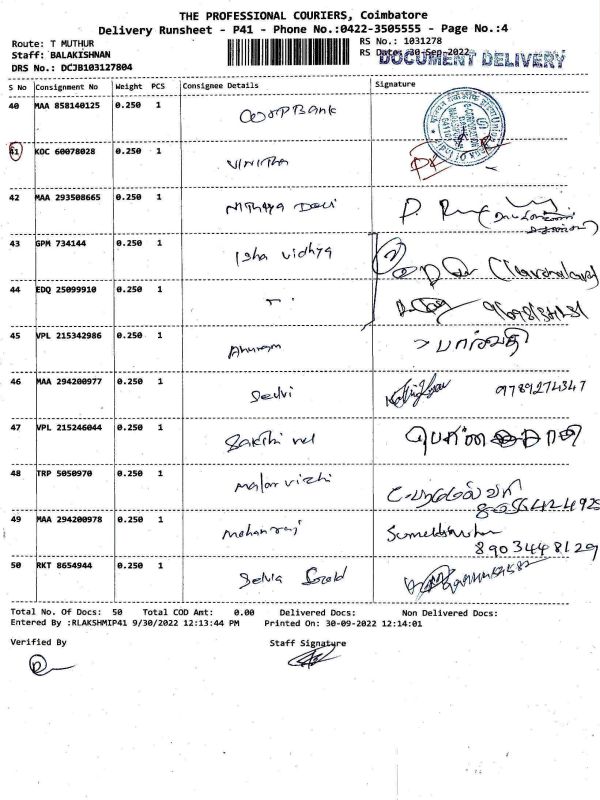 THE PROFESSIONAL COURIERS, Coimbatore
Delivery Runsheet - P41 - Phone No.:0422-3505555 - Page No.:4
Route: T MUTHUR
RS No.: 1031278
Staff: BALAKISHNAN
RS Date: 30-Sep-2022
DOCUMENT DELIVERY
DRS No.: DCJB103127804
S No Consignment No Weight PCS Consignee Details Signature
40 MAA 858140125 0.250 1 Corp Bank
41 KOC 60078028 0.250 1 Vinitha
42 MAA 293508665 0.250 1 Nithya Devi
43 GPM 734144 0.250 1 Isha vidhya
44 EDQ 25099910 0.250 1 "
45 VPL 215342986 0.250 1 பார்வதி
46 MAA 294200977 0.250 1 Selvi 9789274347
47 VPL 215246044 0.250 1 Sakthi vel
48 TRP 5050970 0.250 1 Malar vizhi
49 MAA 294200978 0.250 1 Mohanraj
8903448129
50 RKT 8654944 0.250 1 Selvia Gold
Total No. Of Docs: 50 Total COD Amt: 0.00 Delivered Docs: Non Delivered Docs:
Entered By :RLAKSHMIP41 9/30/2022 12:13:44 PM Printed On: 30-09-2022 12:14:01
Verified By Staff Signature